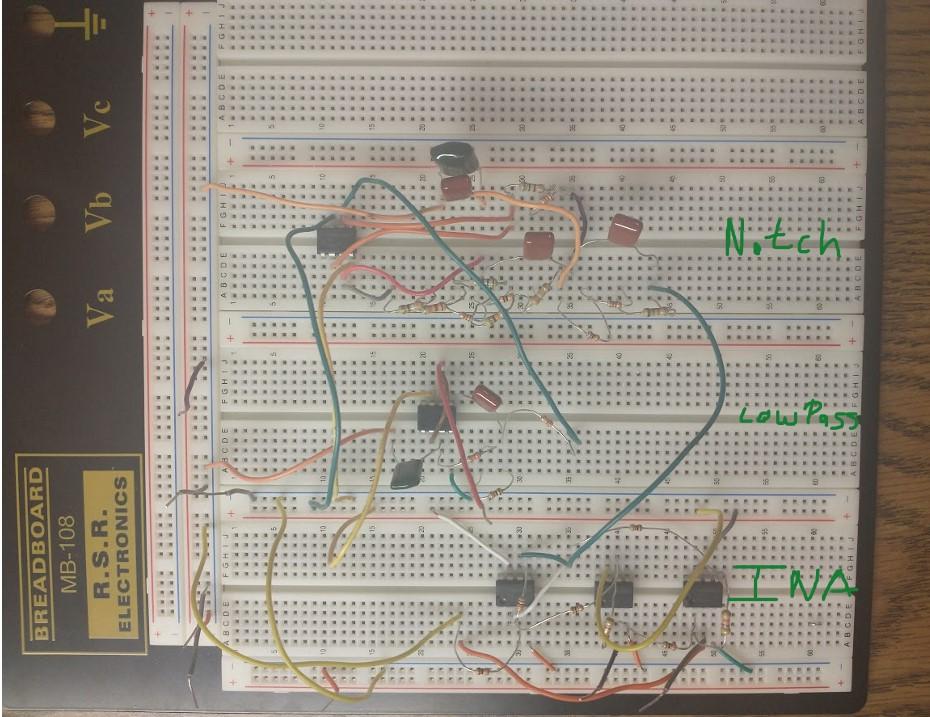 Vc
Vb
Va
BREADBOARD
MB-108
R.S.R.
ELECTRONICS
Notch
Low Pass
INA